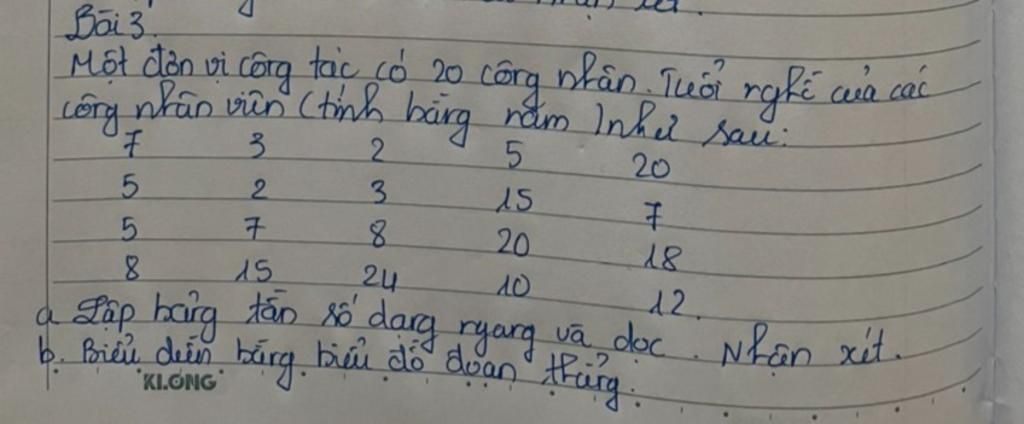 Bài 3.
Một đơn vị công tác có 20 công nhân. Tuổi nghề của các
công nhân viên (tính bằng năm) như sau:
7 3 2 5 20
5 2 3 15 7
5 7 8 20 18
8 15 24 10 12.
a. Lập bảng tần số dạng ngang và dọc. Nhận xét.
b. Biểu diễn bằng biểu đồ đoạn thẳng.
KLONG